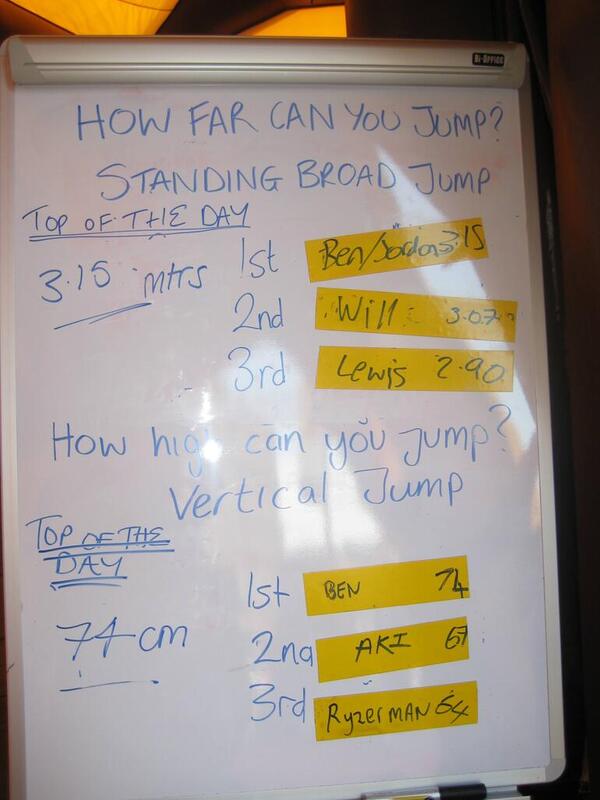 Bi-Office
HOW FAR CAN YOU JUMP?
STANDING BROAD JUMP
TOP OF THE DAY
3.15 mtrs
1st Ben/Jordon 3.15
2nd Will 3.07
3rd Lewis 2.90
How high can you jump?
Vertical Jump
TOP OF THE
DAY
74 cm
1st BEN 74
2nd AKI 67
3rd RyzerMAN 64